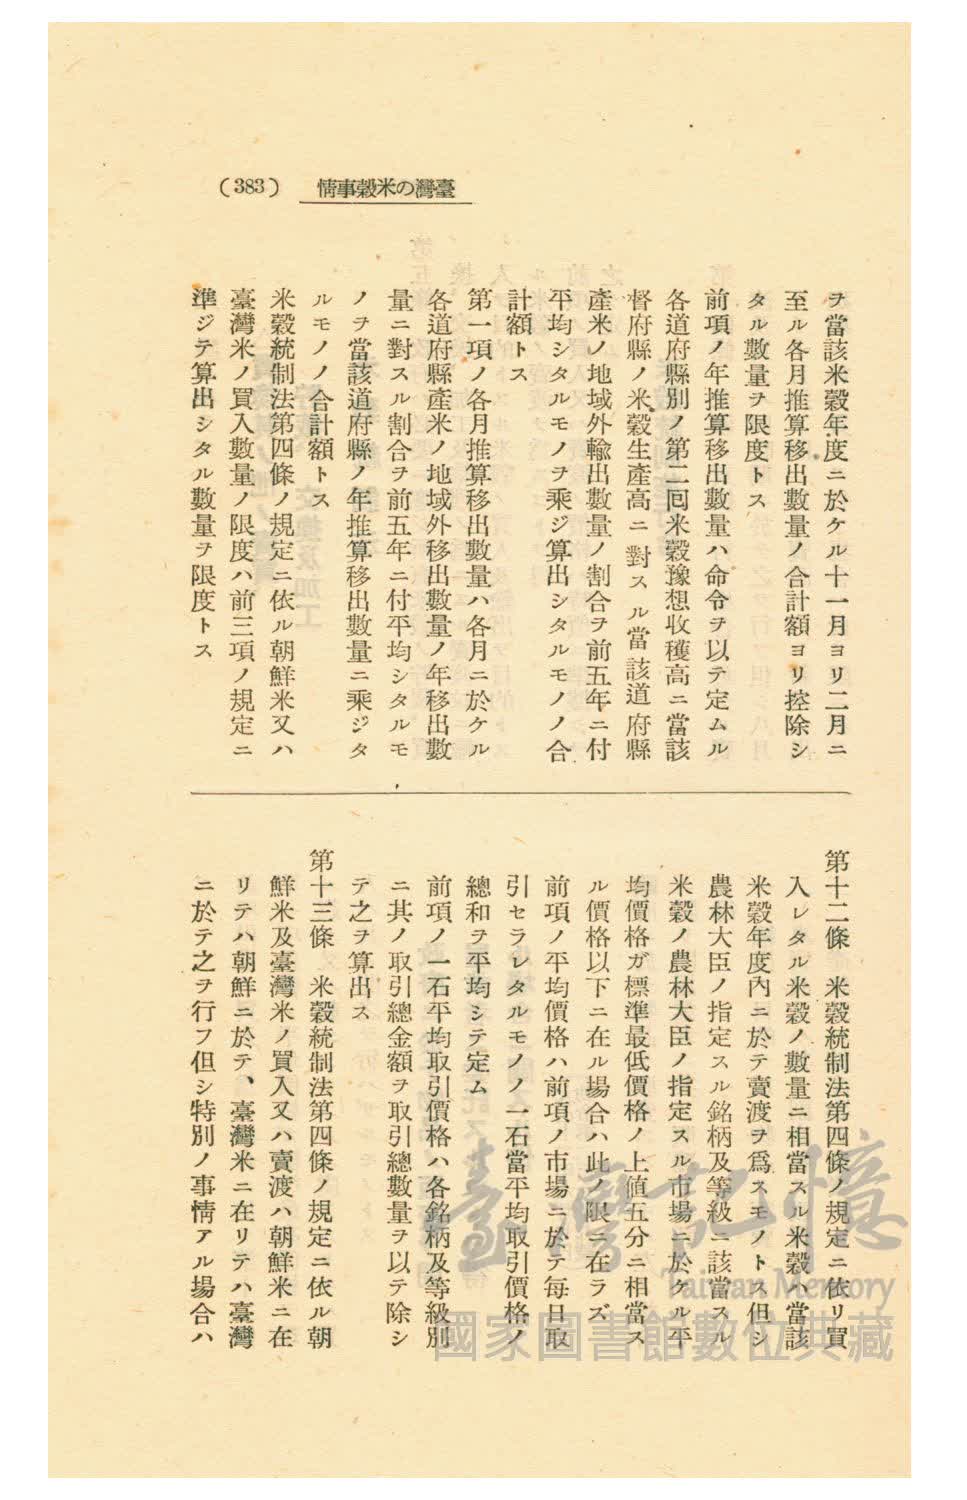 (383)
情事穀米の灣臺
ヲ當該米穀年度ニ於ケル十一月ヨリ二月ニ
至ル各月推算移出數量ノ合計額ヨリ控除シ
タル數量ヲ限度トス
前項ノ年推算移出數量ハ命令ヲ以テ定ムル
各道府縣別ノ第二囘米穀豫想收穫高ニ當該
督府縣ノ米穀生產高ニ對スル當該道府縣
產米ノ地域外輸出數量ノ割合ヲ前五年ニ付
平均シタルモノヲ乘ジ算出シタルモノノ合
計額トス
第一項ノ各月推算移出數量ハ各月ニ於ケル
各道府縣產米ノ地域外移出數量ノ年移出數
量ニ對スル割合ヲ前五年ニ付平均シタルモ
ノヲ當該道府縣ノ年推算移出數量ニ乘ジタ
ルモノノ合計額トス
米穀統制法第四條ノ規定ニ依ル朝鮮米又ハ
臺灣米ノ買入數量ノ限度ハ前三項ノ規定ニ
準ジテ算出シタル數量ヲ限度トス
第十二條　米穀統制法第四條ノ規定ニ依リ買
入レタル米穀ノ數量ニ相當スル米穀ハ當該
米穀年度內ニ於テ賣渡ヲ爲スモノトス但シ
農林大臣ノ指定スル銘柄及等級ニ該當スル
米穀ノ農林大臣ノ指定スル市場ニ於ケル平
均價格ガ標準最低價格ノ上値五分ニ相當ス
ル價格以下ニ在ル場合ハ此ノ限ニ在ラズ
前項ノ平均價格ハ前項ノ市場ニ於テ每日取
引セラレタルモノノ一石當平均取引價格ノ
總和ヲ平均シテ定ム
前項ノ一石平均取引價格ハ各銘柄及等級別
ニ其ノ取引總金額ヲ取引總數量ヲ以テ除シ
テ之ヲ算出ス
第十三條　米穀統制法第四條ノ規定ニ依ル朝
鮮米及臺灣米ノ買入又ハ賣渡ハ朝鮮米ニ在
リテハ朝鮮ニ於テ、臺灣米ニ在リテハ臺灣
ニ於テ之ヲ行フ但シ特別ノ事情アル場合ハ
臺灣記憶
Taiwan Memory
國家圖書館數位典藏